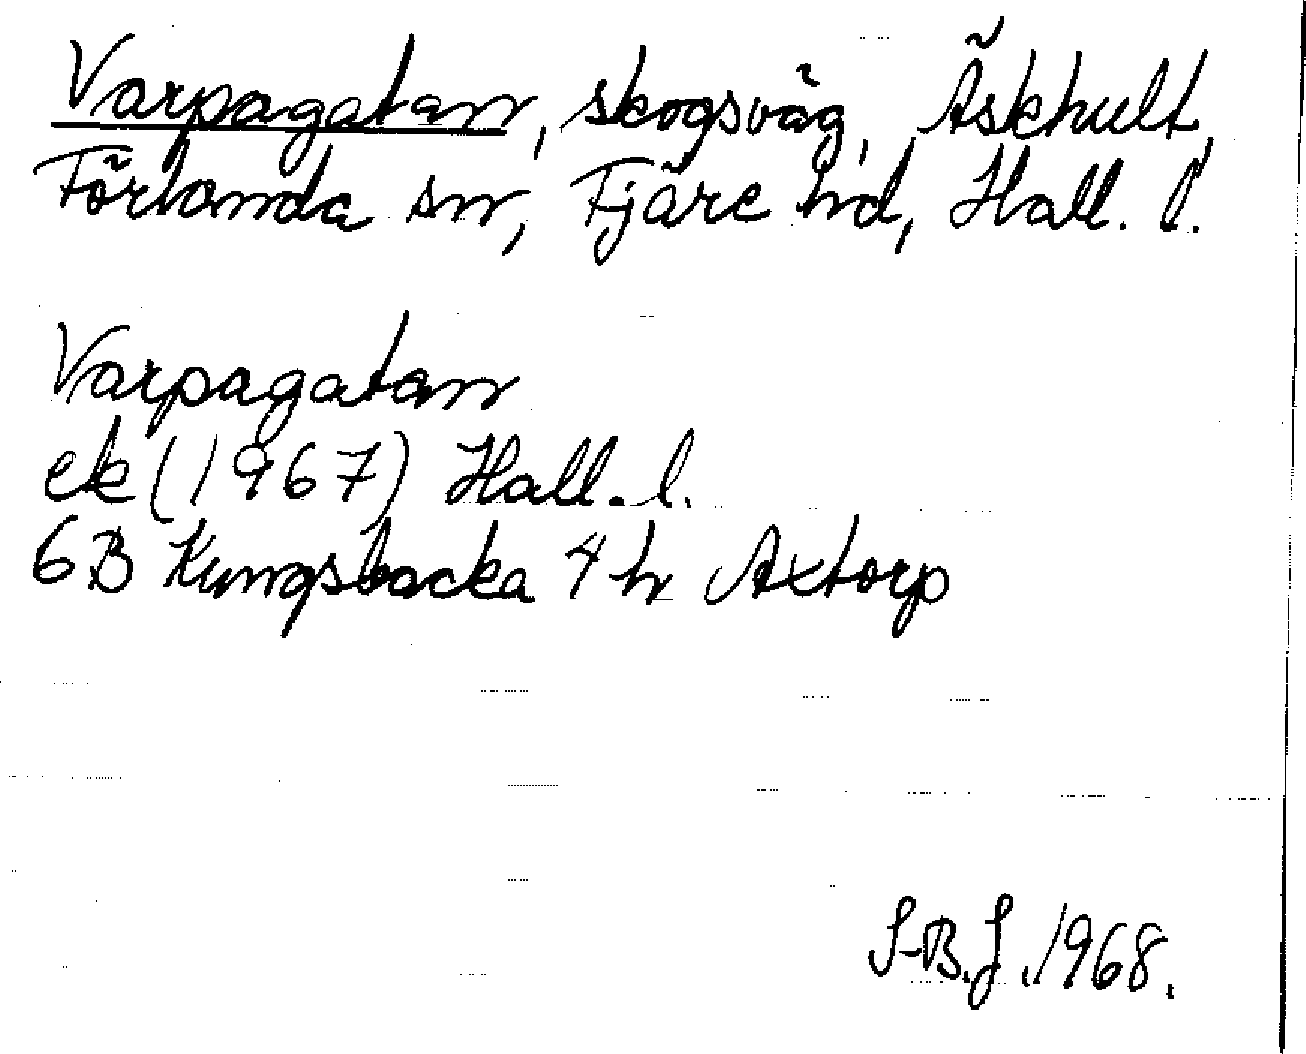 Varpagatan, skogsväg, Äskhult,
Förlanda sn, Fjäre hd, Hall. l.
Varpagatan
ek (1967) Hall. l.
6B Kungsbacka 4 h Axtorp
S-B.J. 1968.